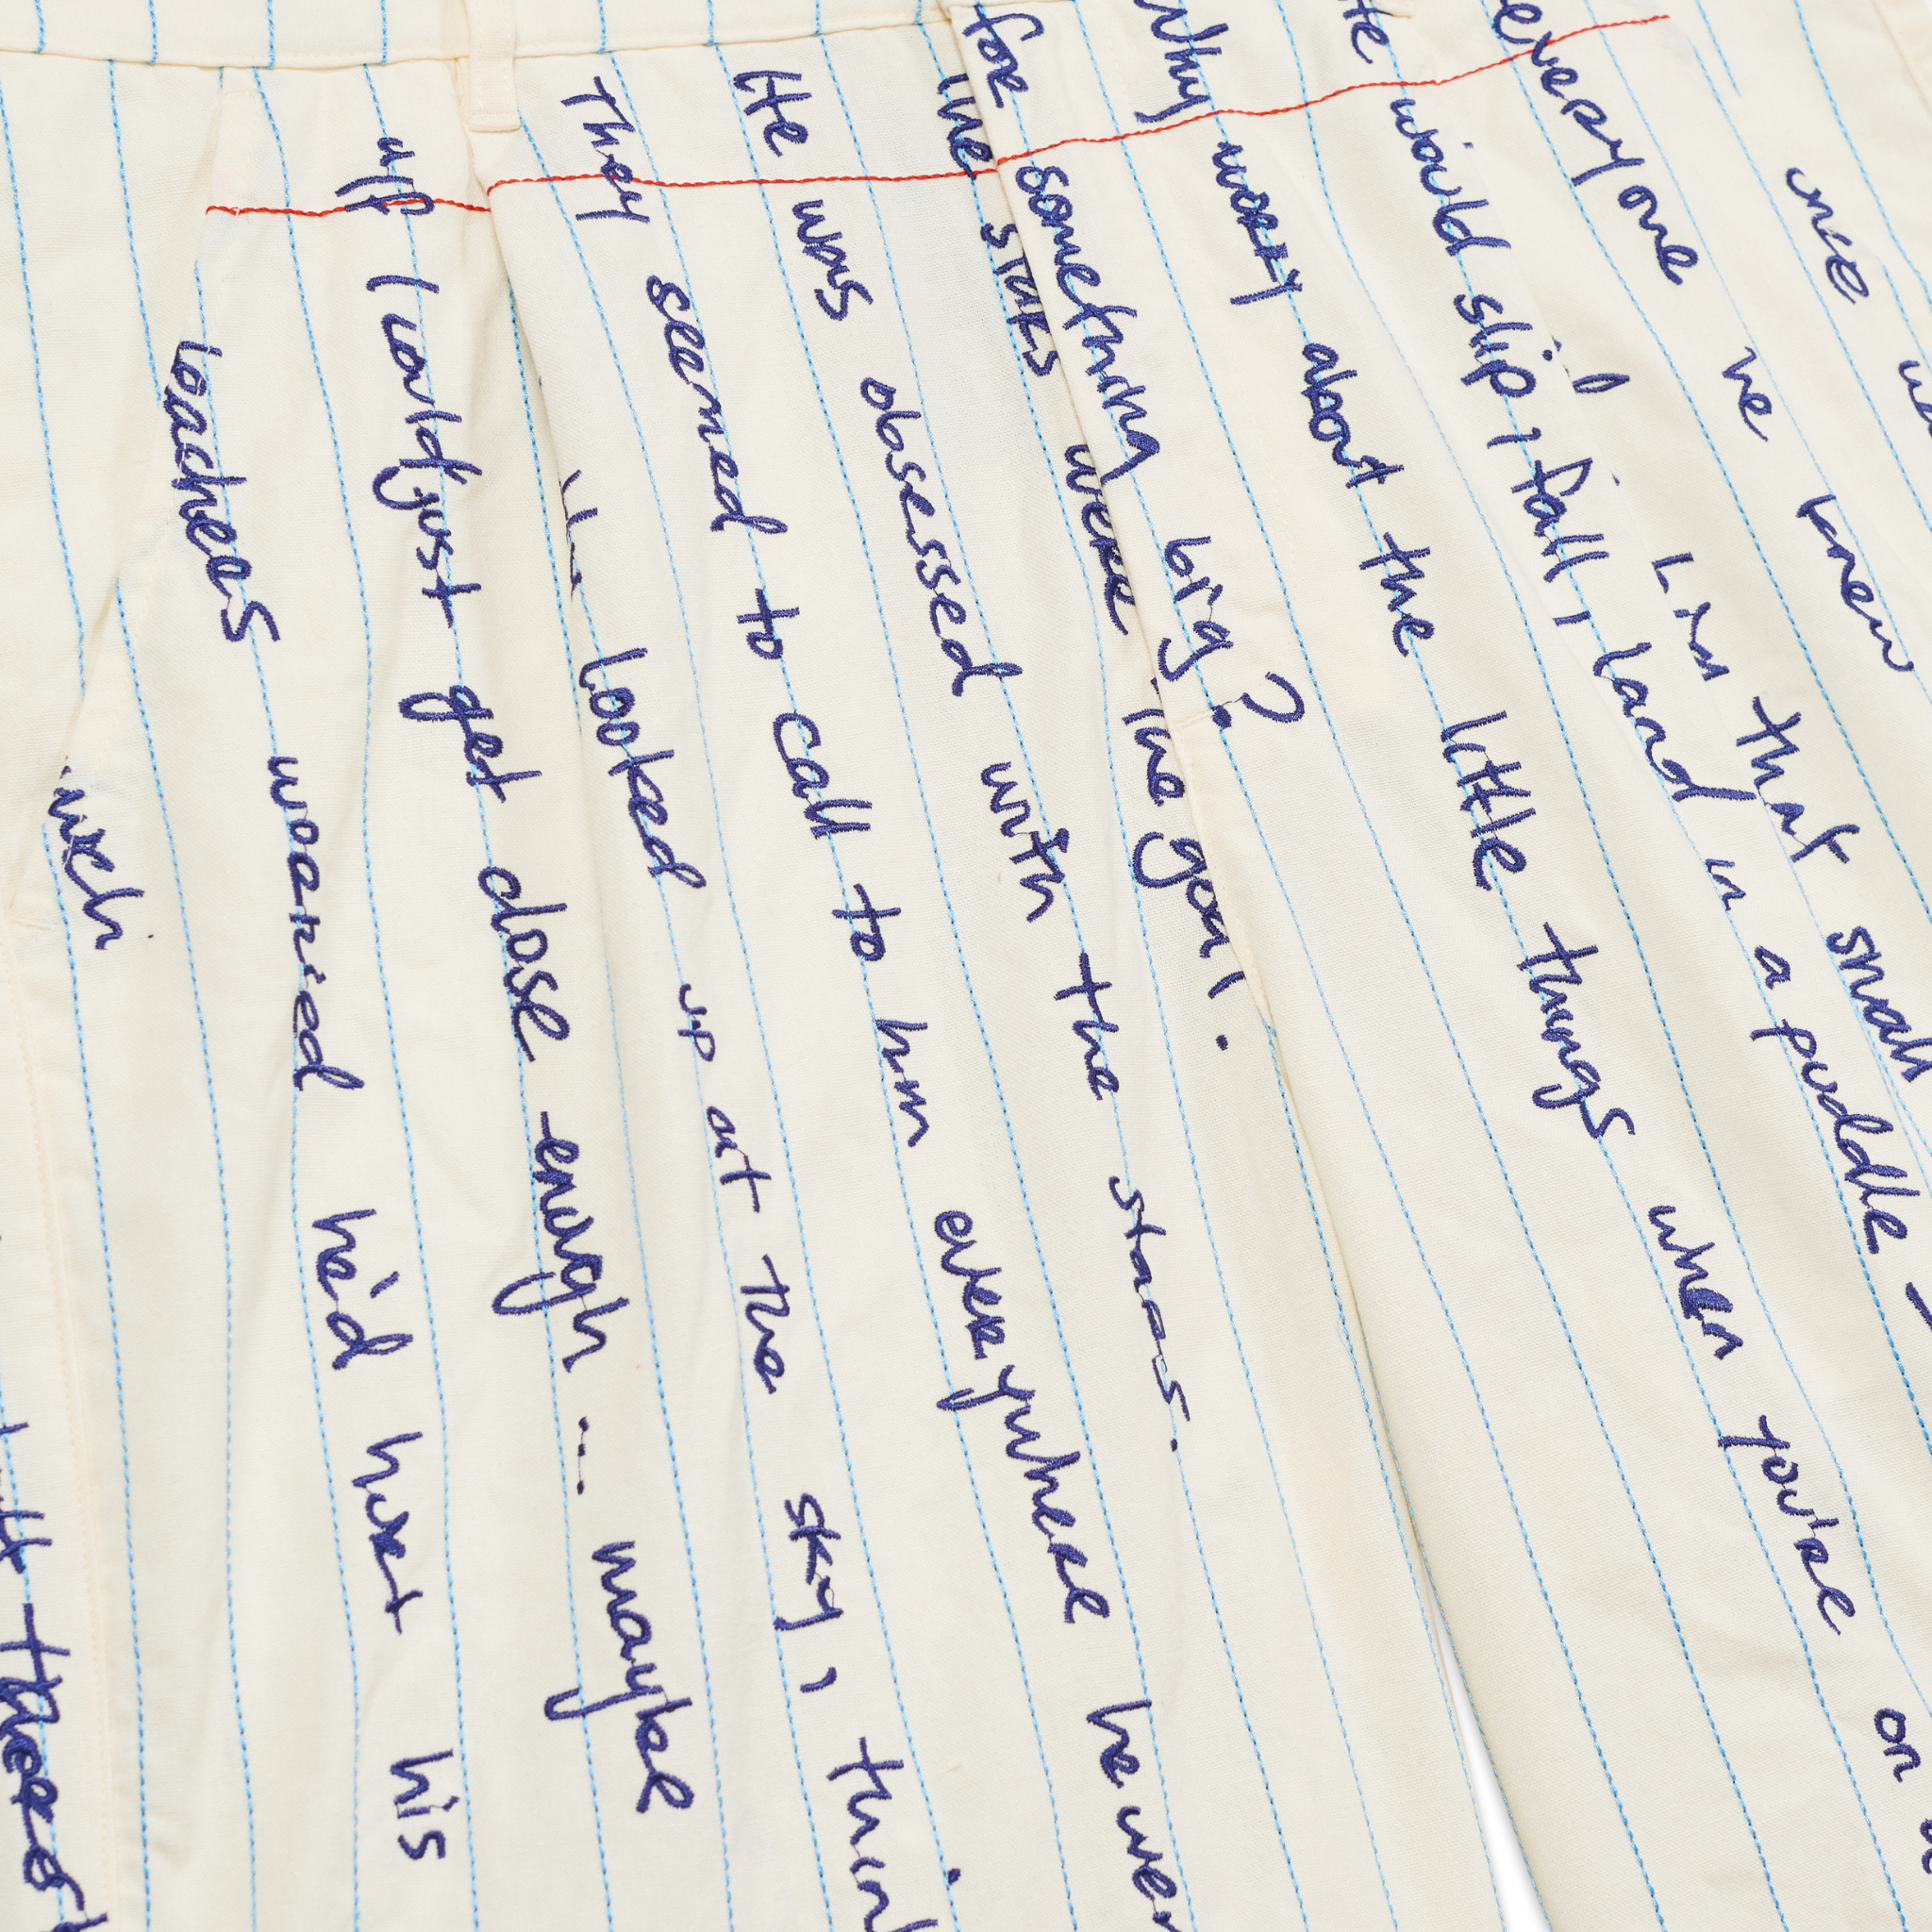 once
everyone he knew
that small
would slip, fall, land in a puddle
Why worry about the little things when you're on
for something big?
the stars were the goal.
He was obsessed with the stars.
They seemed to call to him everywhere he
looked up at the sky,
"If I could just get close enough ... maybe
teachers worried he'd hurt his